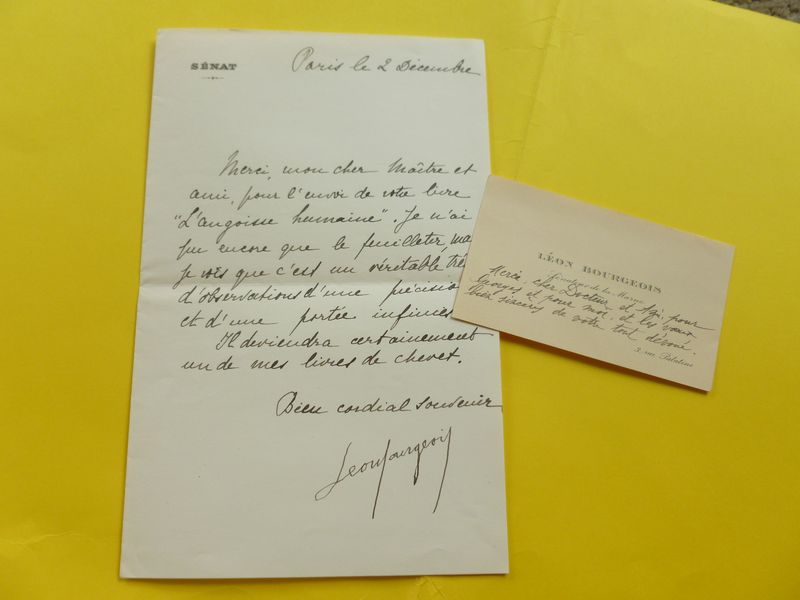 SÉNAT
Paris le 2 Décembre
Merci, mon cher Maître et
ami, pour l'envoi de votre livre
"L'angoisse humaine". Je n'ai
pu encore que le feuilleter, ma
je vois que c'est un véritable tré
d'observations d'une précisio
et d'une portée infinies
Il deviendra certainement
un de mes livres de chevet.
Bien cordial souvenir
Leon Bourgeois
LÉON BOURGEOIS
de la Marne
Merci, cher Docteur et Ami, pour
et pour moi. et les vœux
bien sincères de votre tout dévoué.
3, rue Palatine